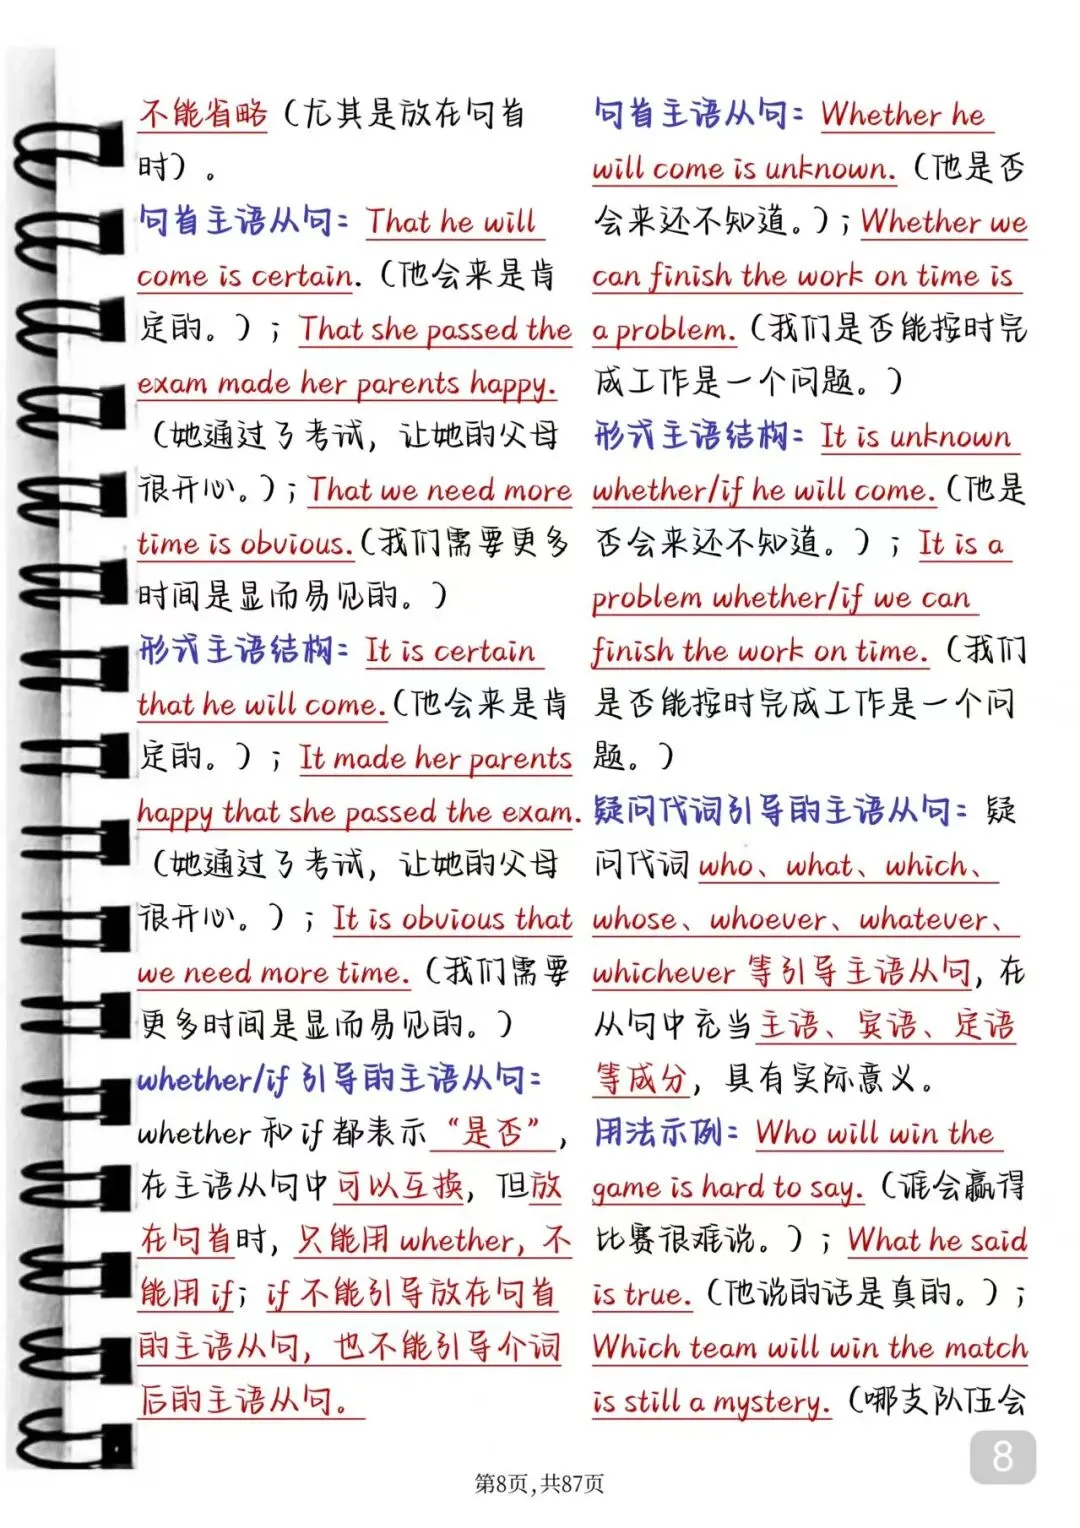 不能省略（尤其是放在句首
时）。
句首主语从句：That he will
come is certain.（他会来是肯
定的。）；That she passed the
exam made her parents happy.
（她通过了考试，让她的父母
很开心。）；That we need more
time is obvious.（我们需要更多
时间是显而易见的。）
形式主语结构：It is certain
that he will come.（他会来是肯
定的。）；It made her parents
happy that she passed the exam.
（她通过了考试，让她的父母
很开心。）；It is obvious that
we need more time.（我们需要
更多时间是显而易见的。）
whether/if 引导的主语从句：
whether 和 if 都表示“是否”，
在主语从句中可以互换，但放
在句首时，只能用 whether，不
能用 if；if 不能引导放在句首
的主语从句，也不能引导介词
后的主语从句。
句首主语从句：Whether he
will come is unknown.（他是否
会来还不知道。）；Whether we
can finish the work on time is
a problem.（我们是否能按时完
成工作是一个问题。）
形式主语结构：It is unknown
whether/if he will come.（他是
否会来还不知道。）；It is a
problem whether/if we can
finish the work on time.（我们
是否能按时完成工作是一个问
题。）
疑问代词引导的主语从句：疑
问代词 who、what、which、
whose、whoever、whatever、
whichever 等引导主语从句，在
从句中充当主语、宾语、定语
等成分，具有实际意义。
用法示例：Who will win the
game is hard to say.（谁会赢得
比赛很难说。）；What he said
is true.（他说的话是真的。）；
Which team will win the match
is still a mystery.（哪支队伍会
8
第8页,共87页